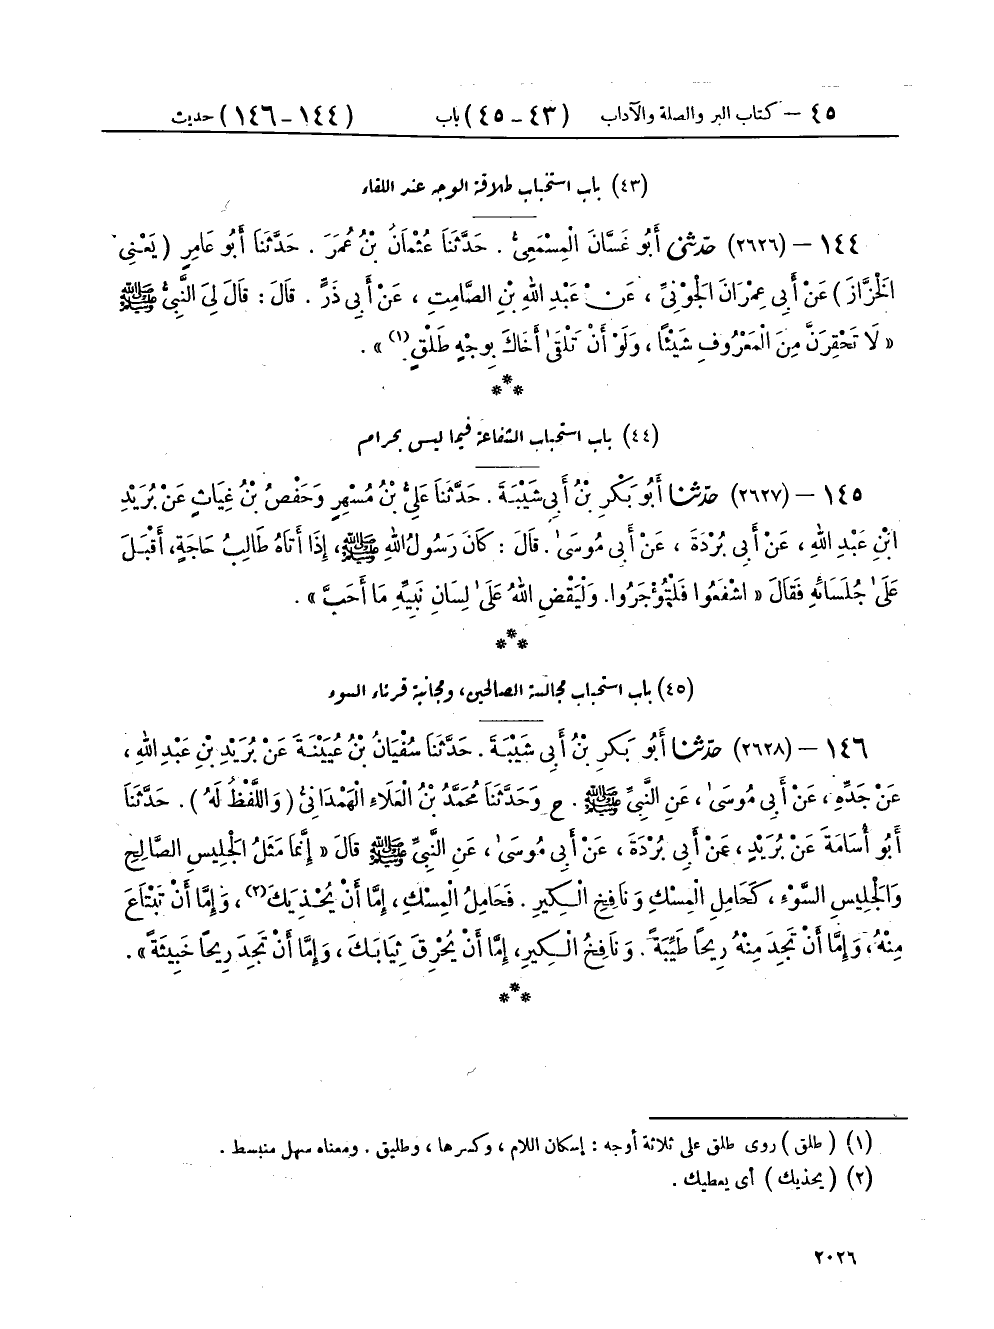 ٤٥ — كتاب البر والصلة والآداب (٤٣-٤٥) باب (١٤٤-١٤٦) حديث
(٤٣) باب استحباب طلاقة الوجه عند اللقاء
١٤٤ — (٢٦٢٦) حَدَّثَنِي أَبُو غَسَّانَ الْمِسْمَعِيُّ. حَدَّثَنَا عُثْمَانُ بْنُ عُمَرَ. حَدَّثَنَا أَبُو عَامِرٍ (يَعْنِي
الْخَزَّازَ) عَنْ أَبِي عِمْرَانَ الْجَوْنِيِّ، عَنْ عَبْدِ اللهِ بْنِ الصَّامِتِ، عَنْ أَبِي ذَرٍّ. قَالَ: قَالَ لِيَ النَّبِيُّ ﷺ
« لَا تَحْقِرَنَّ مِنَ الْمَعْرُوفِ شَيْئًا، وَلَوْ أَنْ تَلْقَىٰ أَخَاكَ بِوَجْهٍ طَلْقٍ(١) ».
***
(٤٤) باب استحباب الشفاعة فيما ليس بحرام
١٤٥ — (٢٦٢٧) حَدَّثَنَا أَبُو بَكْرِ بْنُ أَبِي شَيْبَةَ. حَدَّثَنَا عَلِيُّ بْنُ مُسْهِرٍ وَحَفْصُ بْنُ غِيَاثٍ عَنْ بُرَيْدِ
ابْنِ عَبْدِ اللهِ، عَنْ أَبِي بُرْدَةَ، عَنْ أَبِي مُوسَىٰ. قَالَ: كَانَ رَسُولُ اللهِ ﷺ، إِذَا أَتَاهُ طَالِبُ حَاجَةٍ، أَقْبَلَ
عَلَىٰ جُلَسَائِهِ فَقَالَ « اشْفَعُوا فَلْتُؤْجَرُوا. وَلْيَقْضِ اللهُ عَلَىٰ لِسَانِ نَبِيِّهِ مَا أَحَبَّ ».
***
(٤٥) باب استحباب مجالسة الصالحين، ومجانبة قرناء السوء
١٤٦ — (٢٦٢٨) حَدَّثَنَا أَبُو بَكْرِ بْنُ أَبِي شَيْبَةَ. حَدَّثَنَا سُفْيَانُ بْنُ عُيَيْنَةَ عَنْ بُرَيْدِ بْنِ عَبْدِ اللهِ،
عَنْ جَدِّهِ، عَنْ أَبِي مُوسَىٰ، عَنِ النَّبِيِّ ﷺ. ح وَحَدَّثَنَا مُحَمَّدُ بْنُ الْعَلَاءِ الْهَمْدَانِيُّ (وَاللَّفْظُ لَهُ). حَدَّثَنَا
أَبُو أُسَامَةَ عَنْ بُرَيْدٍ، عَنْ أَبِي بُرْدَةَ، عَنْ أَبِي مُوسَىٰ، عَنِ النَّبِيِّ ﷺ قَالَ « إِنَّمَا مَثَلُ الْجَلِيسِ الصَّالِحِ
وَالْجَلِيسِ السَّوْءِ، كَحَامِلِ الْمِسْكِ وَنَافِخِ الْكِيرِ. فَحَامِلُ الْمِسْكِ، إِمَّا أَنْ يُحْذِيَكَ(٢)، وَإِمَّا أَنْ تَبْتَاعَ
مِنْهُ، وَإِمَّا أَنْ تَجِدَ مِنْهُ رِيحًا طَيِّبَةً. وَنَافِخُ الْكِيرِ، إِمَّا أَنْ يُحْرِقَ ثِيَابَكَ، وَإِمَّا أَنْ تَجِدَ رِيحًا خَبِيثَةً ».
***
(١) (طلق) روى طلق على ثلاثة أوجه: إسكان اللام، وكسرها، وطليق. ومعناه سهل منبسط.
(٢) (يحذيك) أى يعطيك.
٢٠٢٦